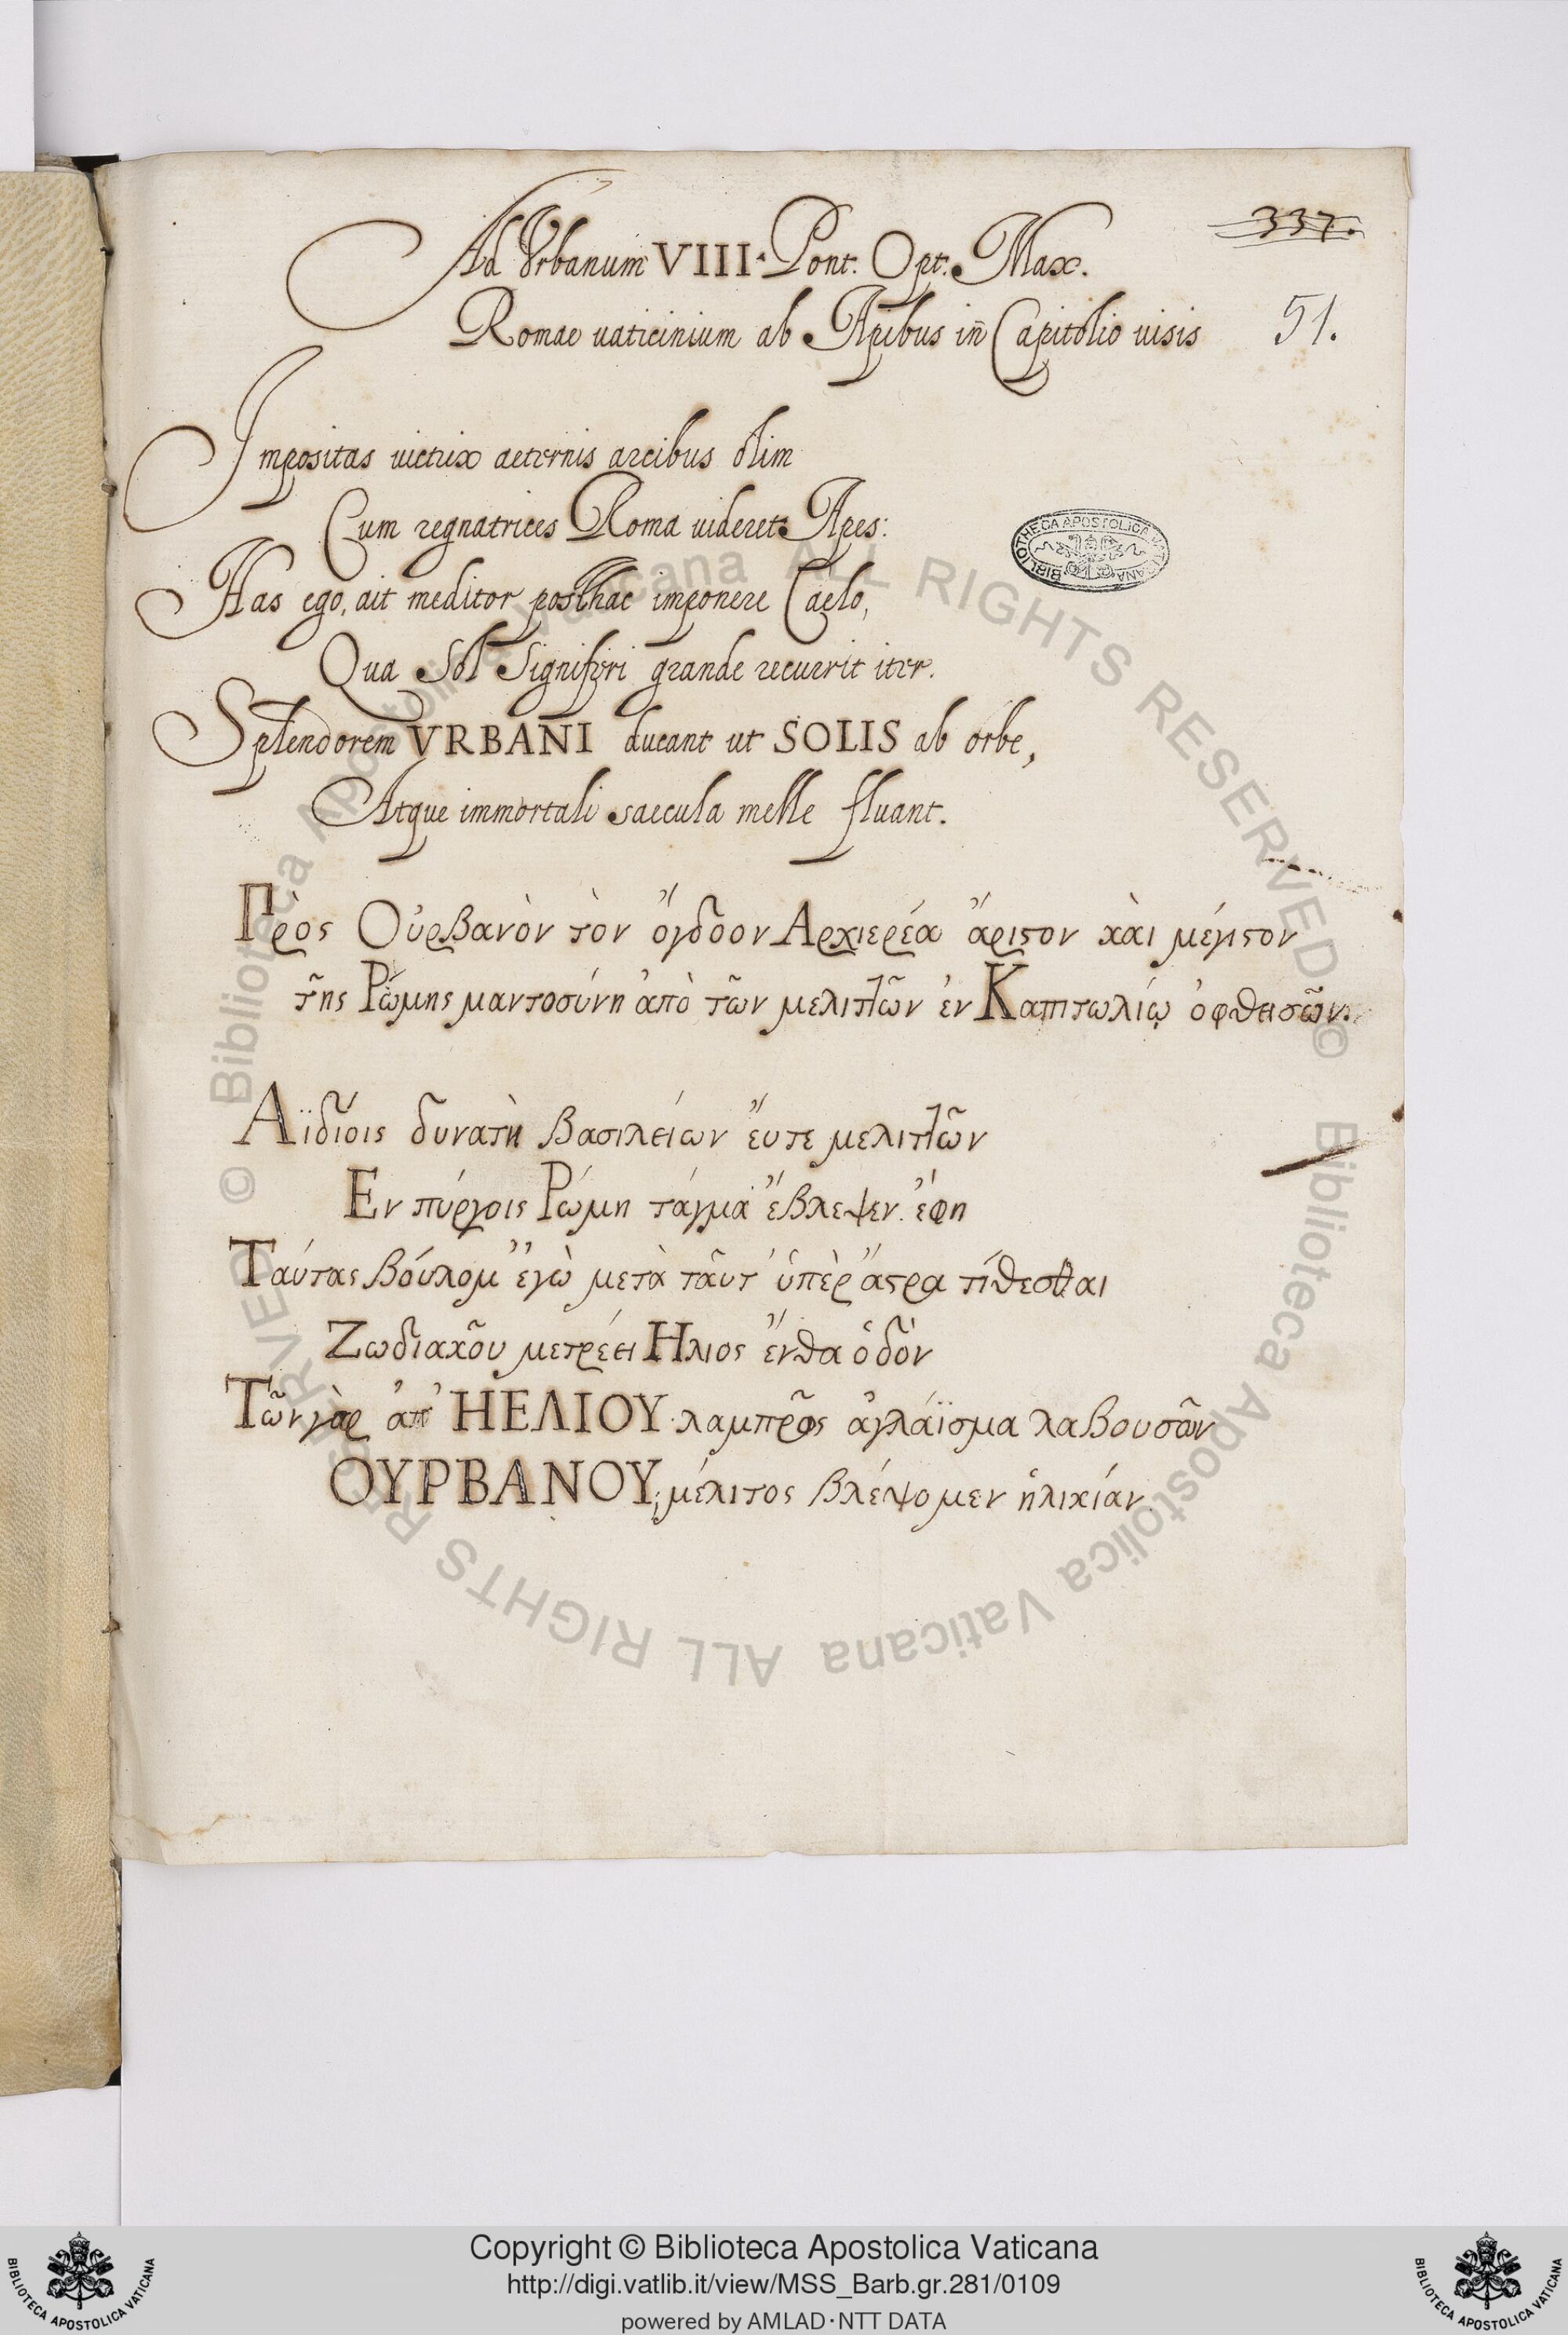 337.
Ad Vrbanum VIII. Pont. Opt. Max.
Romae uaticinium ab Apibus in Capitolio uisis
51.
Impositas uictrix aeternis arcibus olim
Cum regnatrices Roma uideret Apes:
Has ego, ait meditor posthac imponere Caelo,
Qua Sol Signiferi grande recurrit iter.
Splendorem VRBANI ducant ut SOLIS ab orbe,
Atque immortali saecula melle fluant.
Πρὸς Οὐρβανὸν τὸν ὄγδοον Αρχιερέα ἄριςον χὰι μέγιςον
τῆς Ρώμης μαντοσύνη ἀπὸ τῶν μελιτῶν ἐν Καπιτωλίῳ ὀφθεισῶν.
Αϊδίοις δυνατὴ βασιλείων ἔυτε μελιτῶν
Εν πύργοις Ρώμη τάγμα ἔβλεψεν. ἔφη
Ταύτας βόυλομ' ἐγὼ μετὰ τᾶυτ' ὑπὲρ ἄςρα τίθεσθαι
Ζωδιαχοῦ μετρέει Ηλιος ἔνθα ὁδὸν
Τῶν γὰρ ἀπ' ΗΕΛΙΟΥ λαμπρῶς ἀγλάϊσμα λαβουσῶν
ΟΥΡΒΑΝΟΥ, μέλιτος βλέψομεν ἡλιχίαν.
BIBLIOTHECA APOSTOLICA VATICANA
© Biblioteca Apostolica Vaticana ALL RIGHTS RESERVED
© Biblioteca Apostolica Vaticana ALL RIGHTS RESERVED
Copyright © Biblioteca Apostolica Vaticana
http://digi.vatlib.it/view/MSS_Barb.gr.281/0109
powered by AMLAD·NTT DATA
BIBLIOTECA APOSTOLICA VATICANA
BIBLIOTECA APOSTOLICA VATICANA